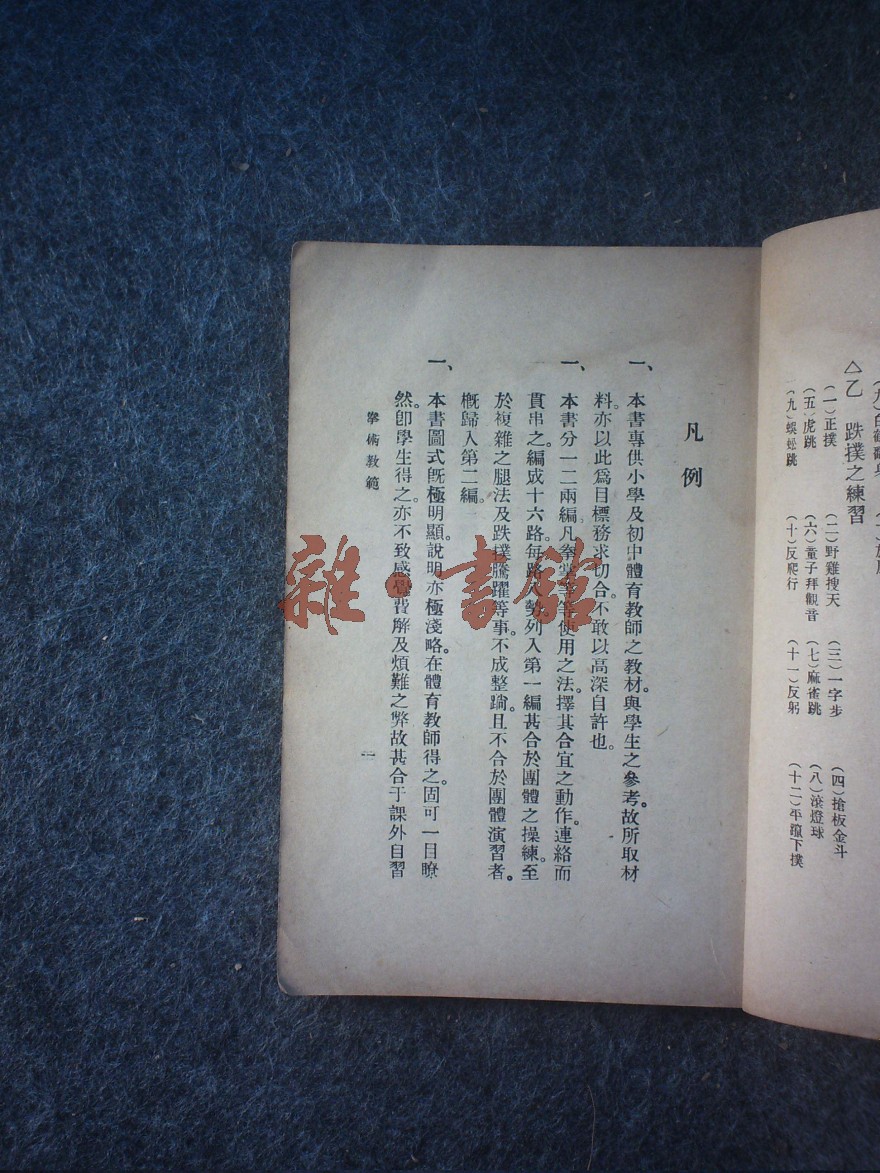 △乙　跌撲之練習
（一）正撲　（二）野雞搜天　（三）一字步　（四）搶板金斗
（五）虎跳　（六）童子拜觀音　（七）麻雀跳　（八）滾燈球
（九）蜈蚣跳　（十）反爬行　（十一）反躬　（十二）平躥下撲
凡例
一、本書專供小學及初中體育教師之教材。與學生之參考。故所取材
料。亦以此爲目標務求切合。不敢以高深自許也。
一、本書分一二兩編凡拳掌等使用之法。擇其合宜之動作。連絡而
貫串之。編成十六路。每路八勢列入第一編甚合於團體之操練。至
於複雜之腿法及跌撲騰躍等事。不成整齣。且不合於團體演習者。
槪歸入第二編。
一、本書圖式旣極明顯。說明亦極淺略。在體育教師得之。固可一目瞭
然。卽學生得之。亦不致感覺費解及煩難之弊故甚合于課外自習
拳術教範
一
雜·書館